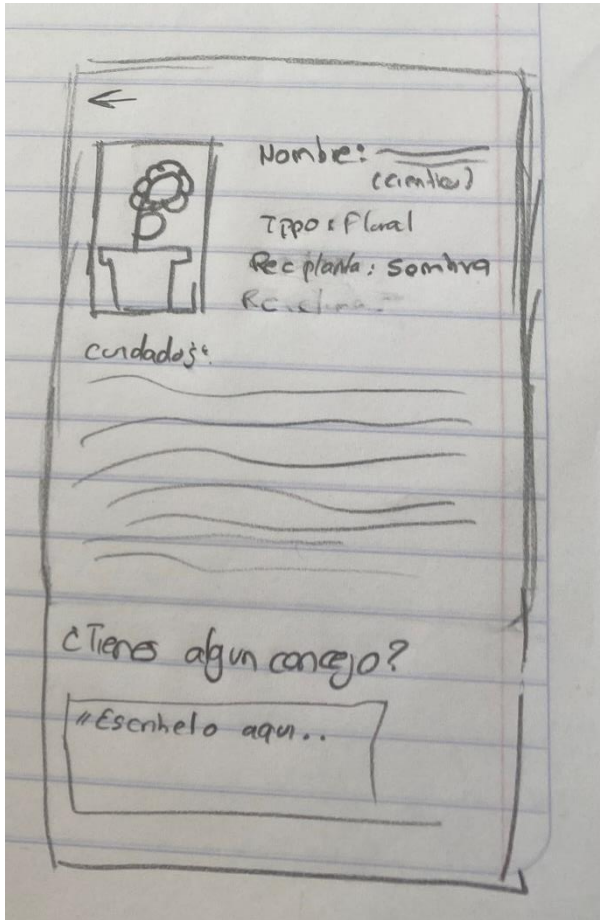 Nombre:
(cientifico)
Tipo: Floral
Rec planta: Sombra
cuidados:
¿Tienes algun concejo?
"Escribelo aqui..